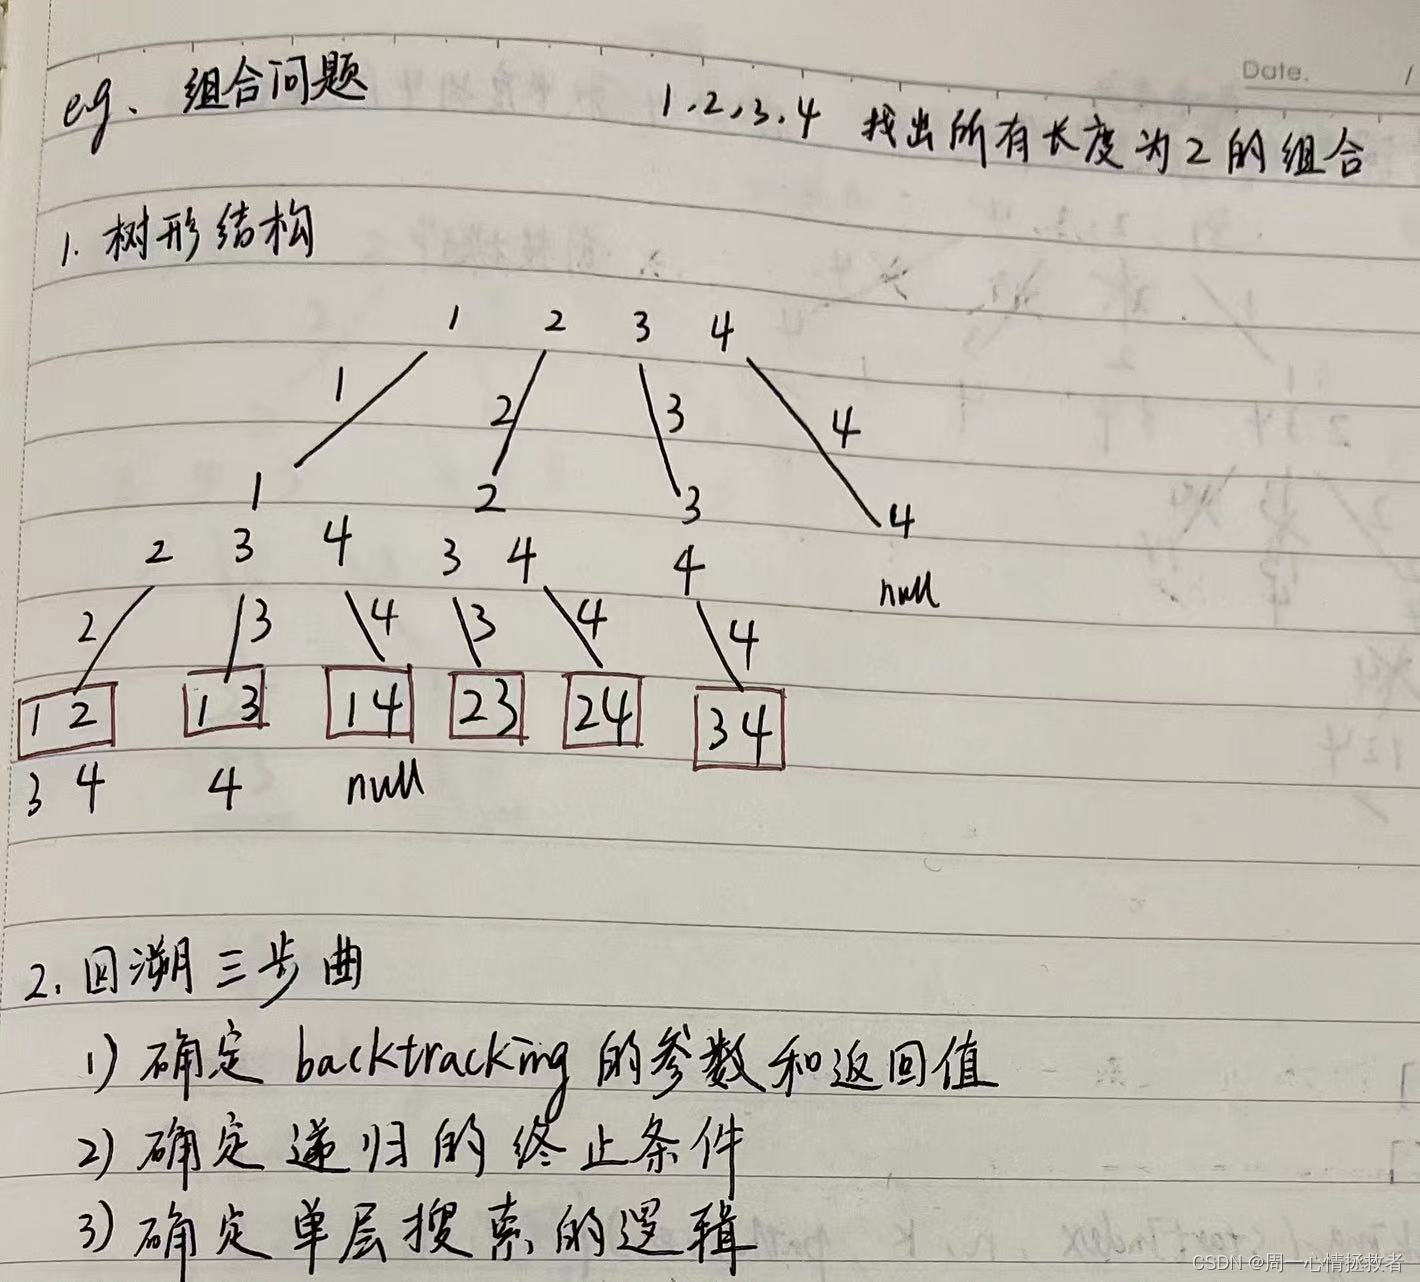 Date.
eg. 组合问题 1.2.3.4 找出所有长度为2的组合
1. 树形结构
1 2 3 4
1 2 3 4
1 2 3 4
2 3 4 3 4 4 null
2 3 4 3 4 4
12 13 14 23 24 34
3 4 4 null
2. 回溯三步曲
1) 确定 backtracking 的参数和返回值
2) 确定递归的终止条件
3) 确定单层搜索的逻辑
CSDN @周一心情拯救者